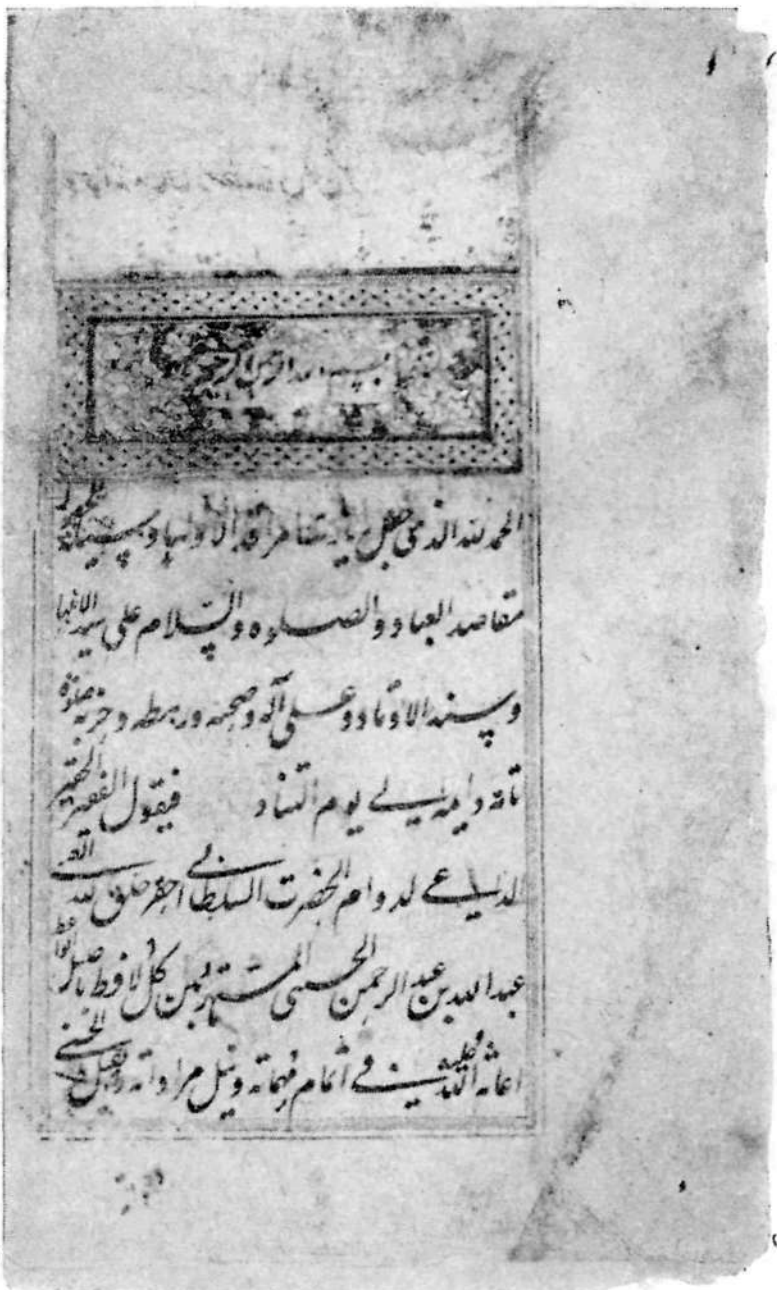 بسم الله الرحمن الرحیم
الحمد لله الذی جعل زیارة مراقد الاولیاء وسیلة
مقاصد العباد والصلوه والسلام علی سید الانبیاء
وسند الاوتاد وعلی آله وصحبه ورهطه وحزبه صلوة
تامة دایمة الی یوم التناد فیقول الفقیر الحقیر
الداعی لدوام الحضرت السلطانی احقر خلق الله الغنی
عبدالله بن عبد الرحمن الحسینی المشتهر بین کل لافظ باصیل الواعظ
اعانه الله فی اتمام مهماته ونیل مراداته